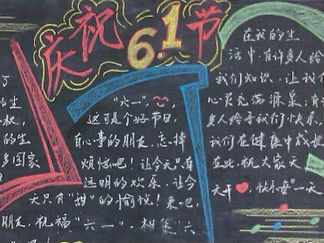 庆祝6.1节
的生
的生
多国家
"六一",
这可是个好节日,
有心事的朋友,忘掉
烦恼吧!让今天只有
透明的欢乐,让今
天只有"甜"的愉悦!来吧,
朋友,祝福"六一",相集"六
在我的生
活中,有许多人给
我们知识,让我们
心灵充满源泉;有许
多人给予我们快乐,
我们在健康中成长
在此,祝大家天
天开 快乐每一天